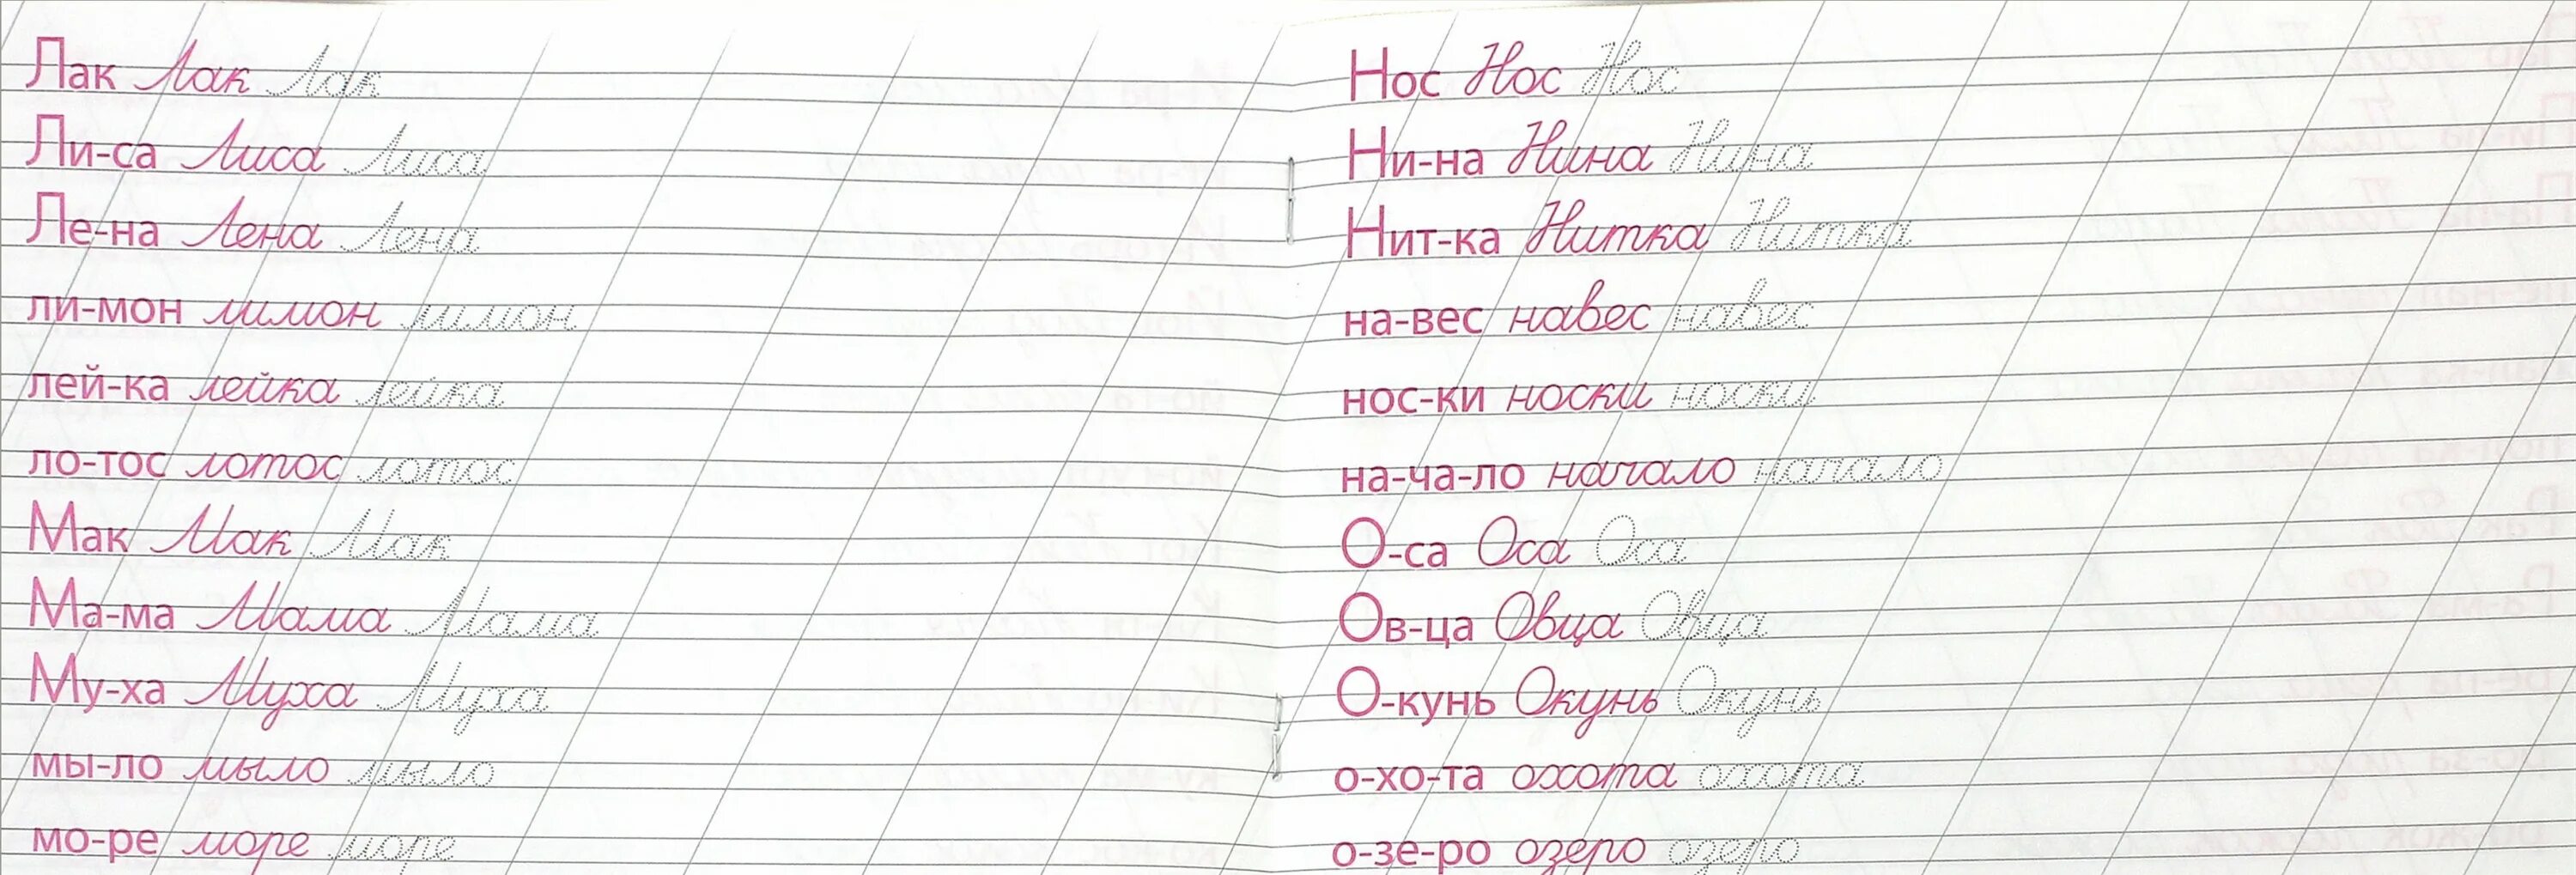 Лак Лак Лак
Ли-са Лиса Лиса
Ле-на Лена Лена
ли-мон лимон лимон
лей-ка лейка лейка
ло-тос лотос лотос
Мак Мак Мак
Ма-ма Мама Мама
Му-ха Муха Муха
мы-ло мыло мыло
мо-ре море море
Нос Нос Нос
Ни-на Нина Нина
Нит-ка Нитка Нитка
на-вес навес навес
нос-ки носки носки
на-ча-ло начало начало
О-са Оса Оса
Ов-ца Овца Овца
О-кунь Окунь Окунь
о-хо-та охота охота
о-зе-ро озеро озеро